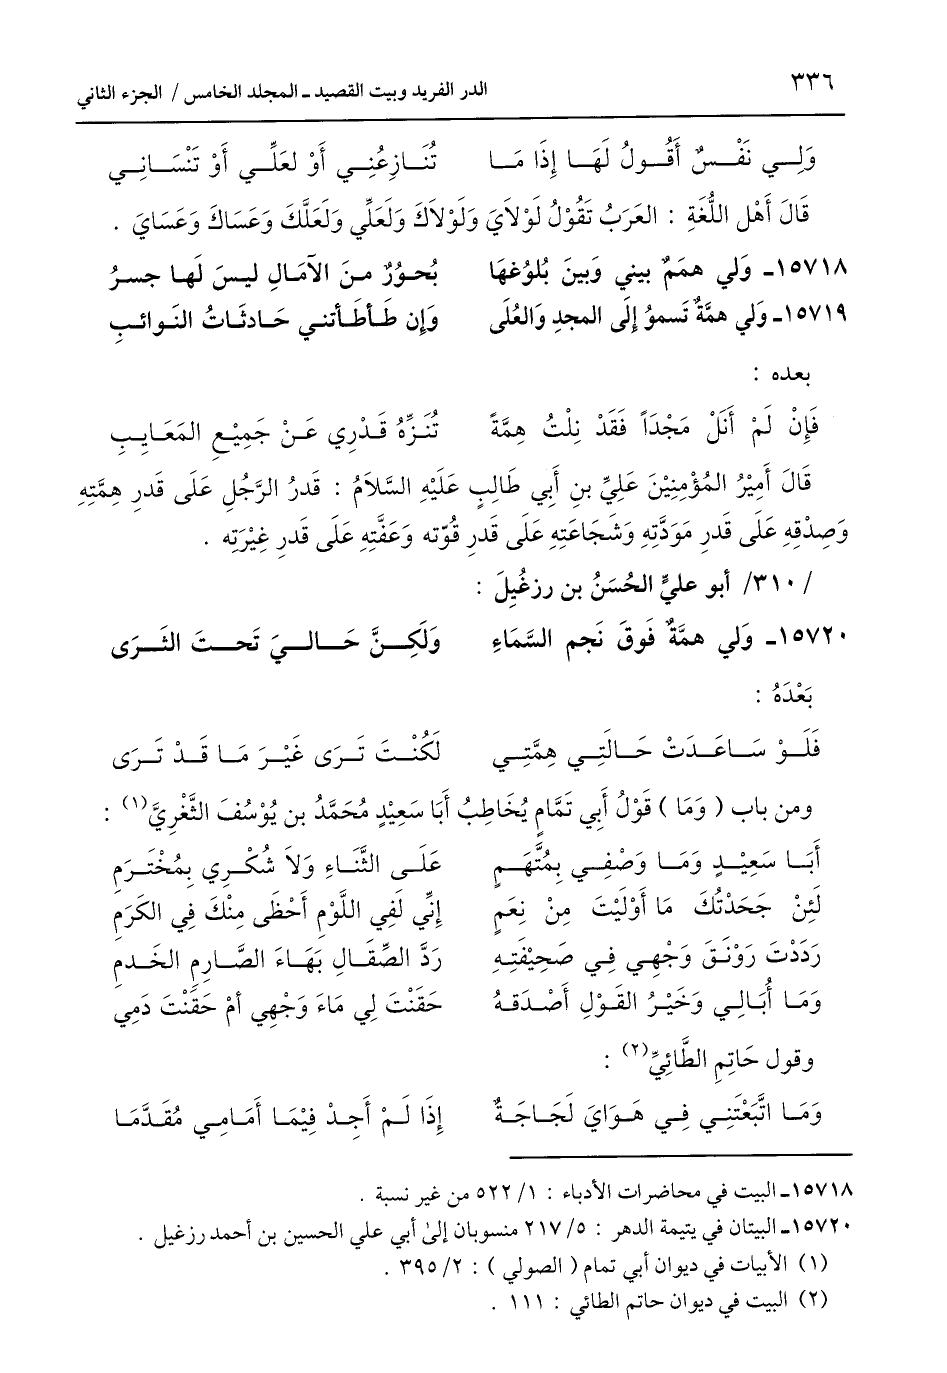 ٣٣٦
الدر الفريد وبيت القصيد ـ المجلد الخامس / الجزء الثاني
وَلِي نَفْسٌ أَقُولُ لَهَا إِذَا مَا تُنَازِعُنِي أَوْ لَعَلِّي أَوْ تَنْسَانِي
قَالَ أَهْل اللُّغَةِ : العَرَبُ تَقُوْلُ لَوْلاَيَ وَلَوْلاَكَ وَلَعَلِّي وَلَعَلَّكَ وَعَسَاكَ وَعَسَايَ .
١٥٧١٨ـ وَلي هممٌ بيني وَبينَ بُلوُغهَا بُحوُرٌ منَ الآمَالِ ليسَ لَها جسرُ
١٥٧١٩ـ وَلي همَّةٌ تَسموُ إِلَى المجدِ وَالعُلَى وَإن طَأطَأتني حَادثَاتُ النَوائبِ
بعده :
فَإِنْ لَمْ أَنَلْ مَجْدَاً فَقَدْ نِلْتُ هِمَّةً تُنَزِّهُ قَدْرِي عَنْ جَمِيْعِ المَعَايِبِ
قَالَ أَمِيْرُ المُؤْمِنِيْنَ عَلِيّ بنِ أَبي طَالِبٍ عَلَيْهِ السَّلاَمُ : قَدرُ الرَّجُلِ عَلَى قَدرِ همَّتِهِ
وَصِدْقِهِ عَلَى قَدرِ مَوَدَّتِهِ وَشَجَاعَتِهِ عَلَى قَدرِ قُوّتِه وَعَفَّتِهِ عَلَى قَدرِ غِيْرَتِه .
/ ٣١٠/ أبو عليٍّ الحُسَنُ بن رزغُيلَ :
١٥٧٢٠ـ وَلي همَّةٌ فَوقَ نَجم السَّمَاءِ وَلَكِنَّ حَالي تَحتَ الثَرَى
بَعْدَهُ :
فَلَوْ سَاعَدَتْ حَالَتِي هِمَّتِي لَكُنْتَ تَرَى غَيْرَ مَا قَدْ تَرَى
ومن باب ( وَمَا ) قَوْلُ أَبِي تَمَّامٍ يُخَاطِبُ أَبَا سَعِيْدٍ مُحَمَّدُ بن يُوْسُفَ الثَّغْرِيَّ(١) :
أَبَا سَعِيْدٍ وَمَا وَصْفِي بِمُتَّهَمٍ عَلَى الثَّنَاءِ وَلاَ شُكْرِي بِمُخْتَرَمِ
لَئِنْ جَحَدْتُكَ مَا أَوْلَيْتَ مِنْ نِعَمٍ إِنِّي لَفِي اللَّوْمِ أَحْظَى مِنْكَ فِي الكَرَمِ
رَدَدْتَ رَوْنَقَ وَجْهِي فِي صَحِيْفَتِهِ رَدَّ الصِّقَالِ بَهَاءَ الصَّارِمِ الخَدمِ
وَمَا أُبَالِي وَخَيْرُ القَوْلِ أَصْدَقهُ حَقَنْتَ لِي مَاءَ وَجْهِي أمْ حَقَنْتَ دَمِي
وقول حَاتِمِ الطَّائِيِّ(٢) :
وَمَا اتَّبَعْتَنِي فِي هَوَايَ لَجَاجَةٌ إِذَا لَمْ أَجِدْ فِيْمَا أَمَامِي مُقَدَّمَا
١٥٧١٨ـ البيت في محاضرات الأدباء : ١/ ٥٢٢ من غير نسبة .
١٥٧٢٠ـ البيتان في يتيمة الدهر : ٥/ ٢١٧ منسوبان إلى أبي علي الحسين بن أحمد رزغيل .
(١) الأبيات في ديوان أبي تمام ( الصولي ) : ٢/ ٣٩٥ .
(٢) البيت في ديوان حاتم الطائي : ١١١ .